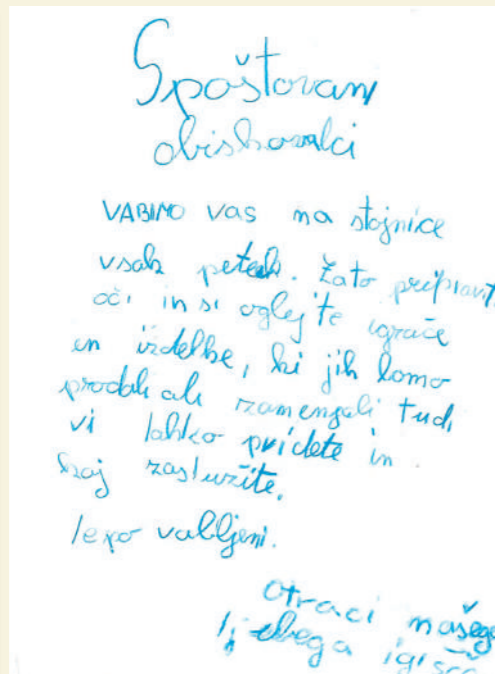 Spoštovani
obiskovalci
VABIMO vas na stojnice
vsak petek. Zato pripravit
oči in si oglejte igrače
in izdelke, ki jih bomo
prodali ali zamenjali tudi
vi lahko pridete in
kaj zaslužite.
lepo vabljeni.
otraci našega
ljubega igrišč